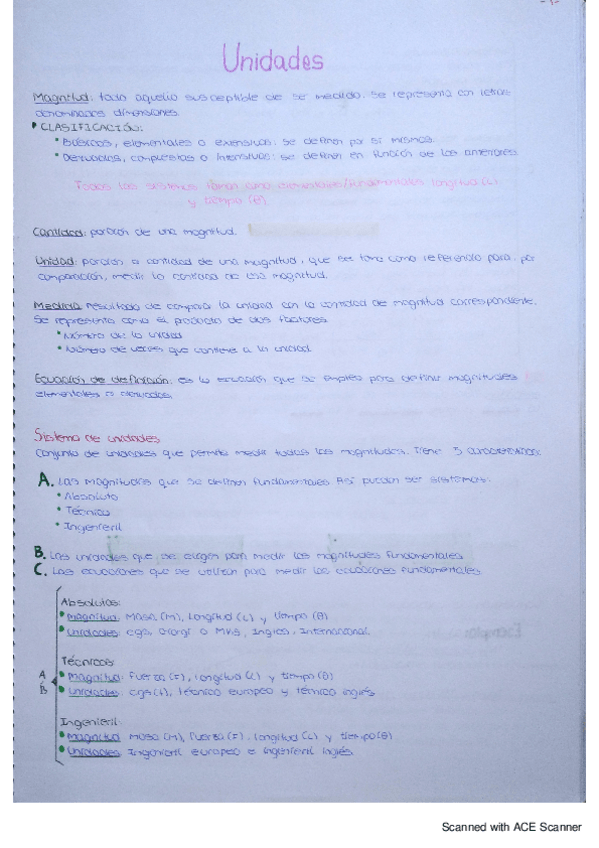 Unidades
Magnitud: todo aquello susceptible de se medido. Se representa con letras
denominadas dimensiones.
• CLASIFICACIÓN:
• Básicas, elementales o extensivas: se definen por sí mismas.
• Derivadas, compuestas o intensivas: se definen en función de las anteriores.
Todos los sistemas toman como elementales/fundamentales longitud (L)
y tiempo (θ).
Cantidad: porción de una magnitud.
Unidad: porción o cantidad de una magnitud, que se toma como referencia para, por
comparación, medir la cantidad de esa magnitud.
Medida: resultado de comparar la unidad con la cantidad de magnitud correspondiente.
Se representa como el producto de dos factores:
• Número de la unidad
• Número de veces que contiene a la unidad.
Ecuación de definición: es la ecuación que se emplea para definir magnitudes
elementales o derivadas.
Sistema de unidades
Conjunto de unidades que permite medir todas las magnitudes. Tiene 3 características:
A. Las magnitudes que se definen fundamentales. Así pueden ser sistemas:
• Absoluto
• Técnico
• Ingenieril
B. Las unidades que se eligen para medir las magnitudes fundamentales
C. Las ecuaciones que se utilizan para medir las ecuaciones fundamentales.
Absolutos:
• Magnitud: Masa (M), Longitud (L) y tiempo (θ)
• Unidades: cgs, Giorgi o MKS, Inglés, Internacional.
Técnicos:
A
B
• Magnitud: Fuerza (F), longitud (L) y tiempo (θ)
• Unidades: cgs (f), técnico europeo y técnico inglés
Ingenieril:
• Magnitud: Masa (M), Fuerza (F), longitud (L) y tiempo (θ)
• Unidades: Ingenieril europeo e ingenieril inglés.
Scanned with ACE Scanner